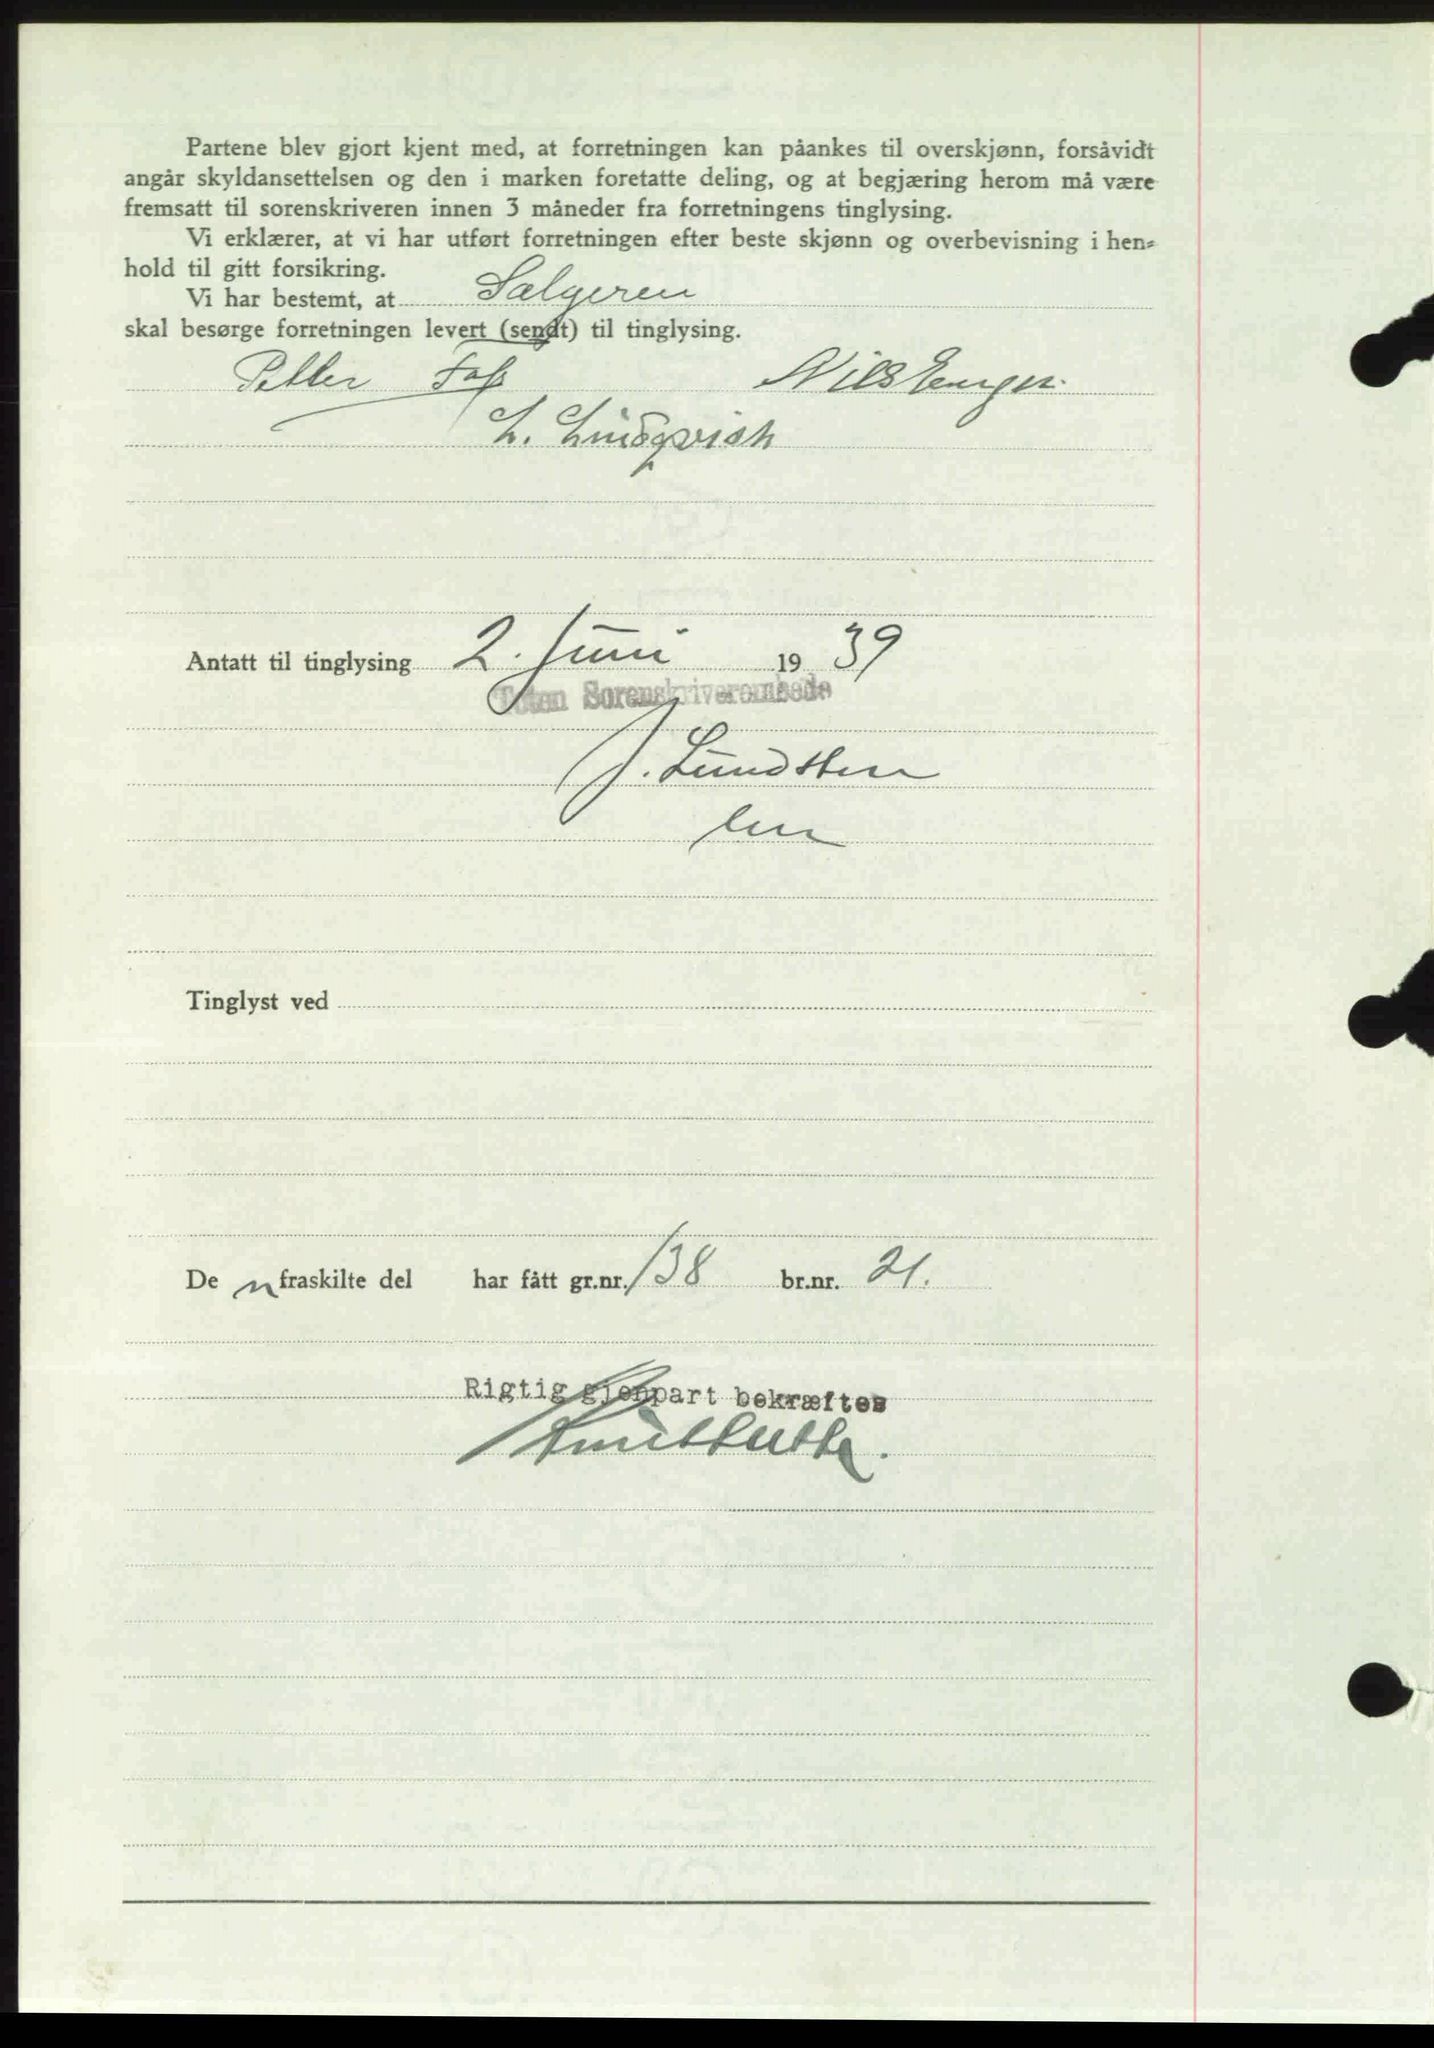 Partene blev gjort kjent med, at forretningen kan påankes til overskjønn, forsåvidt
angår skyldansettelsen og den i marken foretatte deling, og at begjæring herom må være
fremsatt til sorenskriveren innen 3 måneder fra forretningens tinglysing.
Vi erklærer, at vi har utført forretningen efter beste skjønn og overbevisning i hen-
hold til gitt forsikring.
Vi har bestemt, at Sælgeren
skal besørge forretningen levert (sendt) til tinglysing.
Petter Nils
L. Lindqvist
Antatt til tinglysing 2. Juni 1939
Toten Sorenskriverembede
J. Lundsten
Tinglyst ved
De n fraskilte del har fått gr.nr. 138 br.nr. 21.
Rigtig gjenpart bekræftes